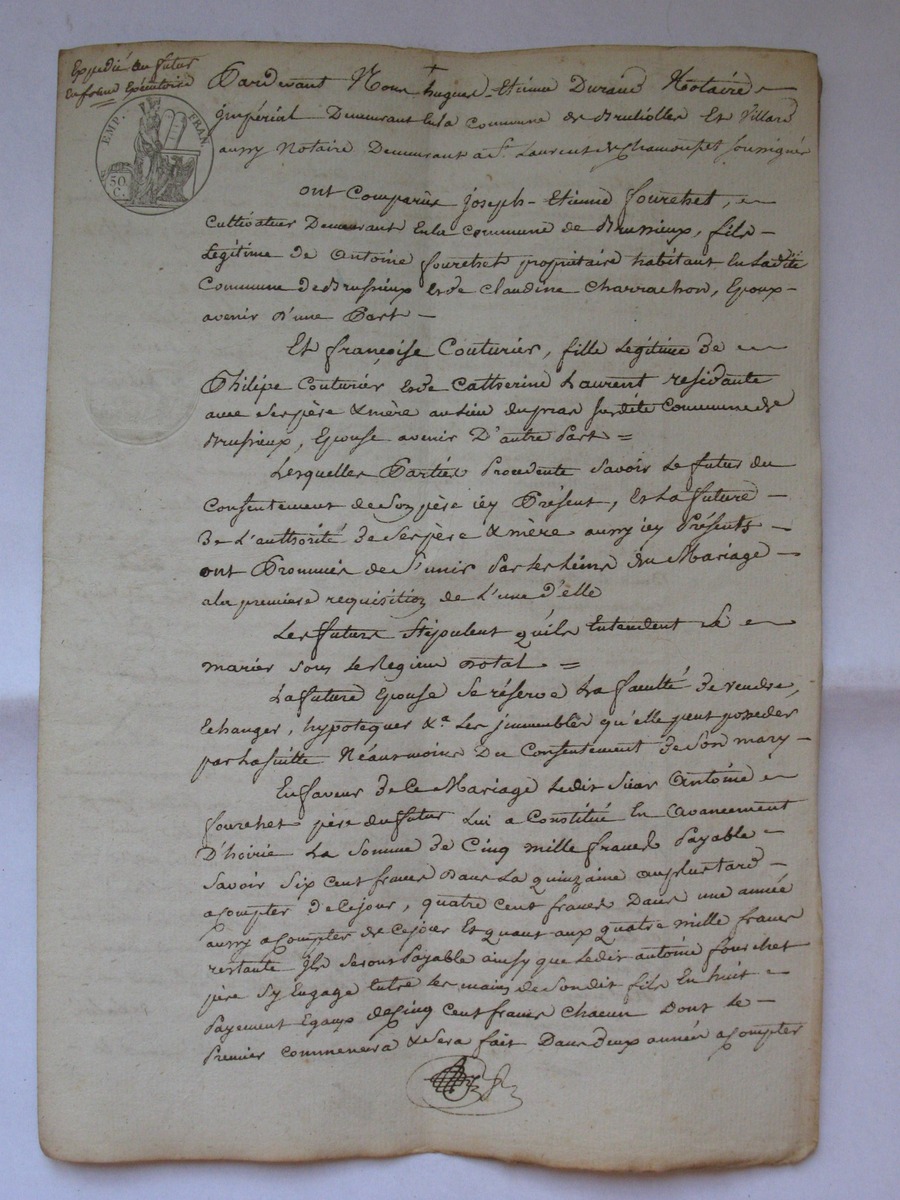 Expédié au futur
En forme Exécutoire
EMP. FRAN.
50 C.
Pardevant Nous hugues-Etienne Durand Notaire
jmpérial Demeurant En la Commune de Brullolles Et Villard
aussy Notaire Demeurant a St. Laurent de Chamousset soussignés
ont Comparûs joseph-Etienne fourchet,
Cultivateur Demeurant En la Commune de Brussieux, fils
Légitime de Antoine fourchet propriétaire habitant En Ladite
Commune de Brussieux et de Claudine Charrachon, Epoux
avenir D'une Part
Et françoise Couturier, fille Légitime de
Philipe Couturier et de Catherine Laurent residante
avec Ses père & mère au Lieu du susdite Commune de
Brussieux, Epouse avenir D'autre Part =
Lesquelles Parties Procedente Savoir Le futur du
Consentement de Son père icy Présent, Et La future
de L'authorité de Ses père & mère aussy icy Présents
ont Prommis de S'unir Par les Liens du Mariage
a la premiere requisition de L'une d'elle
Les futurs Stipulent qu'ils Entendent Se
marier sous Le Regime Dotal =
La future Epouse Se réserve La faculté de vendre,
Echanger, hypotequer &a. Les jmmeubles qu'elle peut posseder
par La suitte Néanmoins Du Consentement de Son mary
En faveur de Ce Mariage Ledit Sieur Antoine
fourchet père du futur Lui a Constitué En Avancement
D'hoirie La Somme de Cinq mille francs Payable
Savoir Six Cent francs Dans La quinzaine au plus tard
a Compter de Ce jour, quatre Cent francs Dans une année
aussy a Compter de Ce jour Et quant aux quatre mille francs
restants Ils Seront Payable ainsy que Ledit antoine fourchet
père Sy Engage Entre les mains de Son dit fils En huit
Payement Egaux de Cinq Cent francs Chacun Dont Le
Premier Commencera & Sera fait Dans deux années a Compter